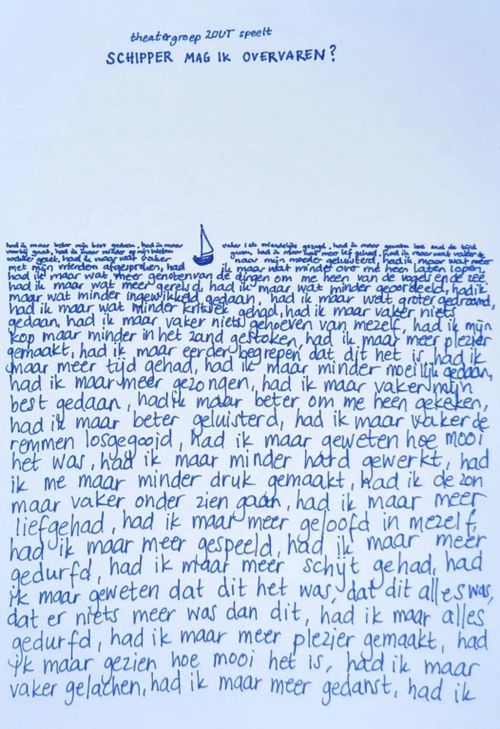 theatergroep ZOUT speelt
SCHIPPER MAG IK OVERVAREN?
had ik maar beter mijn best gedaan, had ik maar vaker
met mijn vrienden afgesproken, had ik maar wat minder over me heen laten lopen,
had ik maar wat meer genoten van de dingen om me heen van de vogels en de zee
had ik maar wat meer gereisd, had ik maar wat minder geoordeeld, had ik
maar wat minder ingewikkeld gedaan, had ik maar wat groter gedroomd,
had ik maar wat minder kritiek gehad, had ik maar vaker niets
gedaan, had ik maar vaker niets gehoeven van mezelf, had ik mijn
kop maar minder in het zand gestoken, had ik maar meer plezier
gemaakt, had ik maar eerder begrepen dat dit het is, had ik
maar meer tijd gehad, had ik maar minder moeilijk gedaan,
had ik maar meer gezongen, had ik maar vaker mijn
best gedaan, had ik maar beter om me heen gekeken,
had ik maar beter geluisterd, had ik maar vaker de
remmen losgegooid, had ik maar geweten hoe mooi
het was, had ik maar minder hard gewerkt, had
ik me maar minder druk gemaakt, had ik de zon
maar vaker onder zien gaan, had ik maar meer
liefgehad, had ik maar meer geloofd in mezelf,
had ik maar meer gespeeld, had ik maar meer
gedurfd, had ik maar meer schijt gehad, had
ik maar geweten dat dit het was, dat dit alles was,
dat er niets meer was dan dit, had ik maar alles
gedurfd, had ik maar meer plezier gemaakt, had
ik maar gezien hoe mooi het is, had ik maar
vaker gelachen, had ik maar meer gedanst, had ik